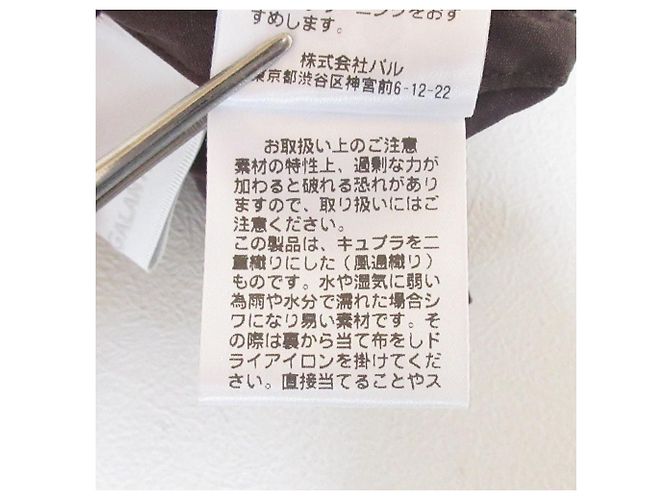 ーニングをおす
すめします。
株式会社パル
東京都渋谷区神宮前6-12-22
お取扱い上のご注意
素材の特性上、過剰な力が
加わると破れる恐れがあり
ますので、取り扱いにはご
注意ください。
この製品は、キュプラを二
重織りにした（風通織り）
ものです。水や湿気に弱い
為雨や水分で濡れた場合シ
ワになり易い素材です。そ
の際は裏から当て布をしド
ライアイロンを掛けてくだ
さい。直接当てることやス
GALAN